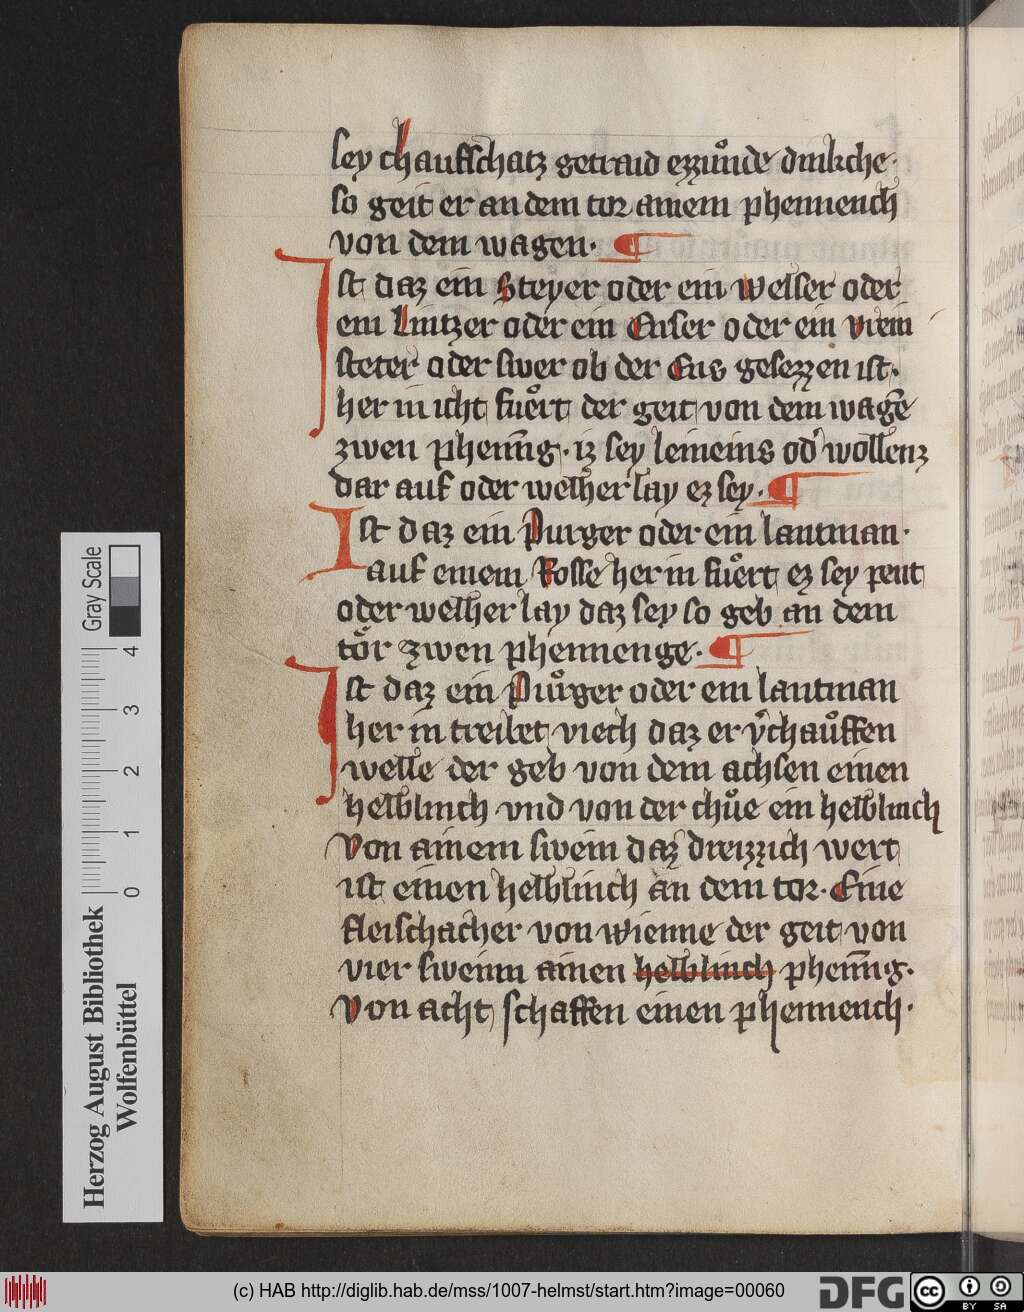 sey chaufschatz getraid ezzuͦnde dinkche·
so geit er an dem tor ainem phennench
von dem wagen· ¶
Ist daz ein Steyer oder ein welser oder
ein Lintzer oder ein Enser oder ein vrein
steter oder swer ob der Ens gesezzen ist·
her in icht fuͦert der geit von dem wagē
zwen phenīg· iz sey leineins od' wollenz
dar auf oder welher lay ez sey· ¶
Ist daz ein Purger oder ein lantman·
auf einem Rosse her in fuͦert ez sey pent
oder welher lay daz sey so geb an dem
tor zwen phennenge· ¶
Ist daz ein Purger oder ein lantman
her in treibet viech daz er v'chauͦffen
welle der geb von dem achsen einen
helblinch vnd von der chuͦe ein helblinch
Von ainem swein daz dreizzich wert
ist einen helblinch an dem tor· Eine
fleischacher von wienne der geit von
vier sweinn ainen helblinch phenīg·
Von acht schaffen einen phennench·
Gray Scale
0 1 2 3 4
Herzog August Bibliothek
Wolfenbüttel
(c) HAB http://diglib.hab.de/mss/1007-helmst/start.htm?image=00060
DFG
cc
BY SA